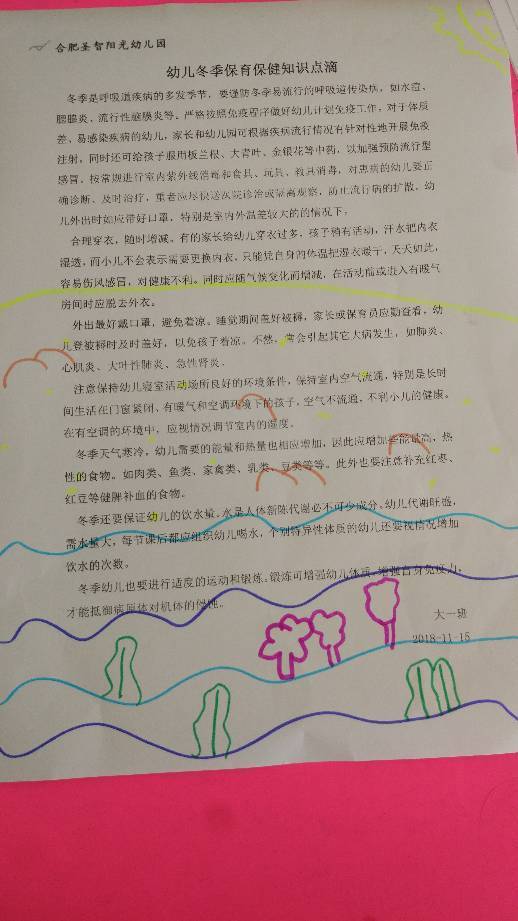 合肥圣智阳光幼儿园
幼儿冬季保育保健知识点滴
冬季是呼吸道疾病的多发季节，要谨防冬季易流行的呼吸道传染病，如水痘、
腮腺炎、流行性脑膜炎等。严格按照免疫程序做好幼儿计划免疫工作，对于体质
差、易感染疾病的幼儿，家长和幼儿园可根据疾病流行情况有针对性地开展免疫
注射，同时还可给孩子服用板兰根、大青叶、金银花等中药，以加强预防流行型
感冒。按常规进行室内紫外线消毒和食具、玩具、教具消毒，对患病的幼儿要正
确诊断、及时治疗，重者应尽快送医院诊治或隔离观察，防止流行病的扩散。幼
儿外出时如应带好口罩，特别是室内外温差较大的的情况下。
合理穿衣，随时增减。有的家长给幼儿穿衣过多，孩子稍有活动，汗水把内衣
湿透，而小儿不会表示需要更换内衣，只能凭自身的体温把湿衣暖干，天天如此，
容易伤风感冒，对健康不利。同时应随气候变化而增减，在活动前或进入有暖气
房间时应脱去外衣。
外出最好戴口罩，避免着凉。睡觉期间盖好被褥，家长或保育员应勤查看，幼
儿登被褥时及时盖好，以免孩子着凉。不然，常会引起其它大病发生，如肺炎、
心肌炎、大叶性肺炎、急性肾炎。
注意保持幼儿寝室活动场所良好的环境条件，保持室内空气流通，特别是长时
间生活在门窗紧闭，有暖气和空调环境下的孩子，空气不流通，不利小儿的健康。
在有空调的环境中，应视情况调节室内的湿度。
冬季天气寒冷，幼儿需要的能量和热量也相应增加，因此应增加些能量高，热
性的食物。如肉类、鱼类、家禽类、乳类、豆类等等。此外也要注意补充红枣、
红豆等健脾补血的食物。
冬季还要保证幼儿的饮水量。水是人体新陈代谢必不可少成分。幼儿代谢旺盛，
需水量大，每节课后都应组织幼儿喝水，个别特异性体质的幼儿还要视情况增加
饮水的次数。
冬季幼儿也要进行适度的运动和锻炼。锻炼可增强幼儿体质，增强自身免疫力，
才能抵御病原体对机体的侵蚀。
大一班
2018-11-15